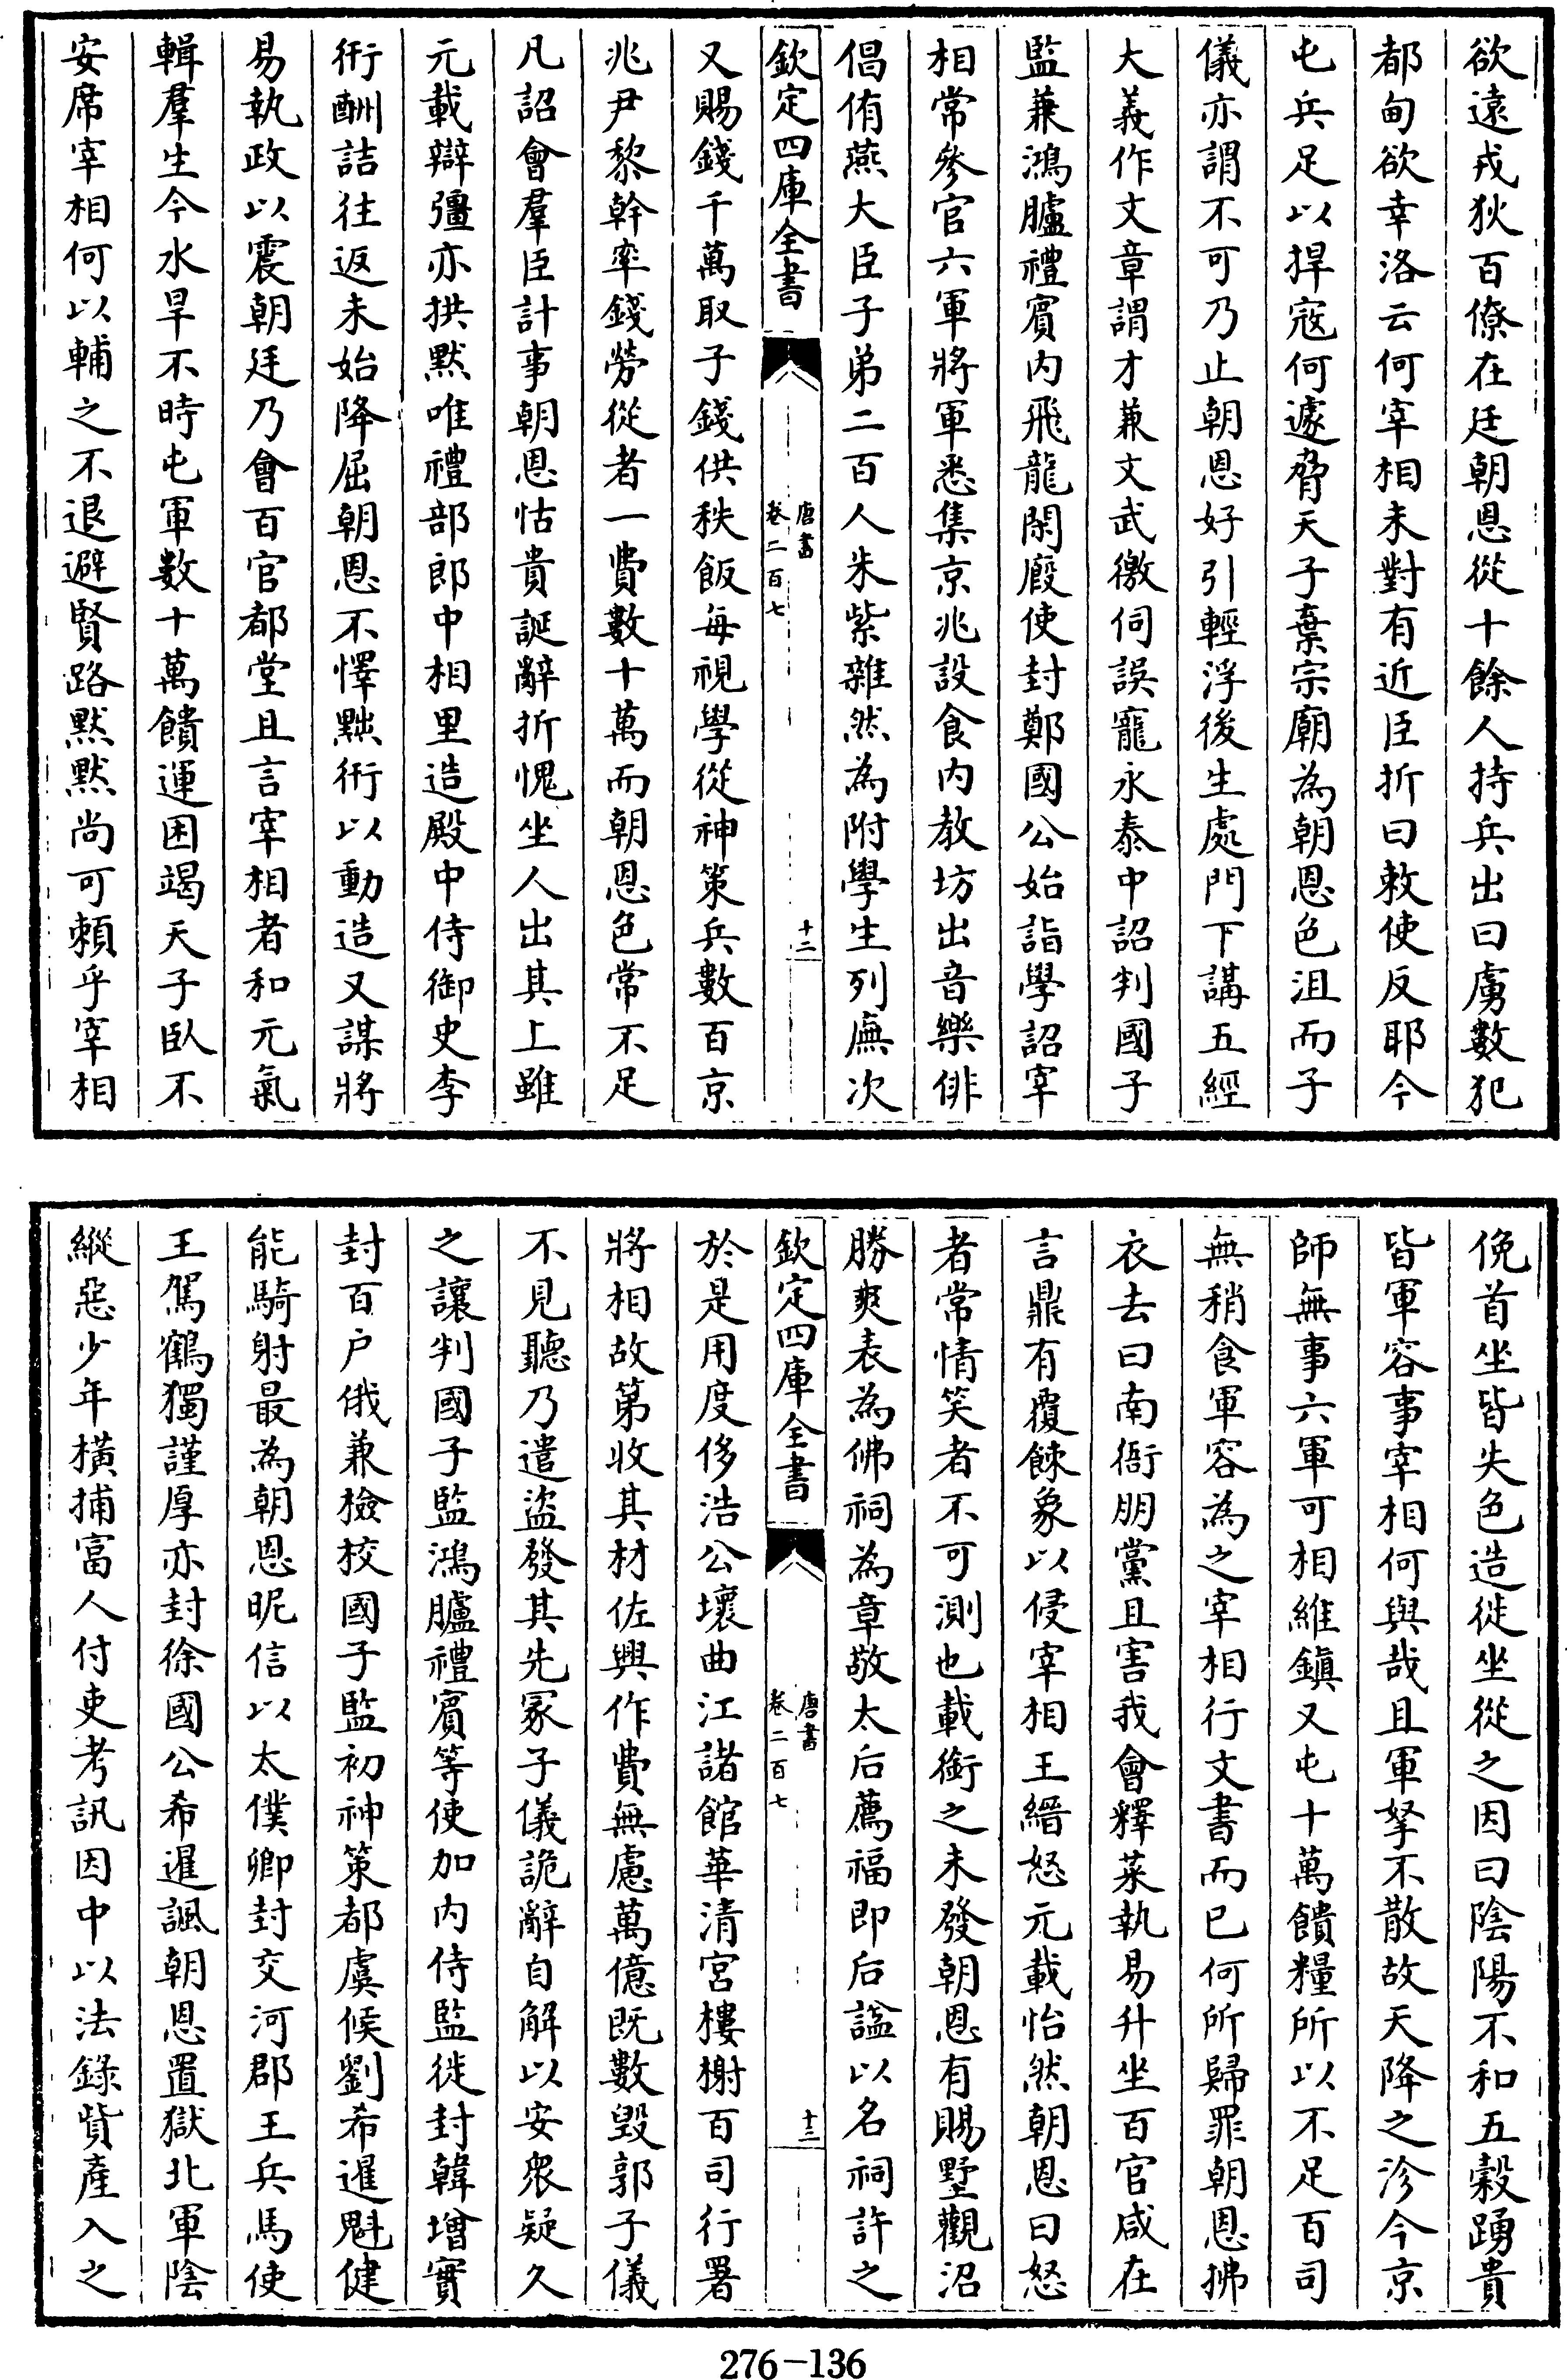 欲遠戎狄百僚在廷朝恩從十餘人持兵出曰虜數犯
都甸欲幸洛云何宰相未對有近臣折曰敕使反耶今
屯兵足以捍寇何遽脅天子棄宗廟為朝恩色沮而子
儀亦謂不可乃止朝恩好引輕浮後生處門下講五經
大義作文章謂才兼文武徼伺誤寵永泰中詔判國子
監兼鴻臚禮賓内飛龍閑廄使封鄭國公始詣學詔宰
相常參官六軍將軍悉集京兆設食内教坊出音樂俳
倡侑燕大臣子弟二百人朱紫雜然為附學生列廡次
欽定四庫全書
唐書
卷二百七
十二
又賜錢千萬取子錢供秩飯每視學從神策兵數百京
兆尹黎幹率錢勞從者一費數十萬而朝恩色常不足
凡詔會羣臣計事朝恩怙貴誕辭折愧坐人出其上雖
元載辯彊亦拱默唯禮部郎中相里造殿中侍御史李
衎酬詰往返未始降屈朝恩不懌黜衎以動造又謀將
易執政以震朝廷乃會百官都堂且言宰相者和元氣
輯羣生今水旱不時屯軍數十萬饋運困竭天子臥不
安席宰相何以輔之不退避賢路默默尚可賴乎宰相
俛首坐皆失色造徙坐從之因曰陰陽不和五穀踴貴
皆軍容事宰相何與哉且軍拏不散故天降之沴今京
師無事六軍可相維鎮又屯十萬饋糧所以不足百司
無稍食軍容為之宰相行文書而已何所歸罪朝恩拂
衣去曰南衙朋黨且害我會釋菜執易升坐百官咸在
言鼎有覆餗象以侵宰相王縉怒元載怡然朝恩曰怒
者常情笑者不可測也載銜之未發朝恩有賜墅觀沼
勝爽表為佛祠為章敬太后薦福即后諡以名祠許之
欽定四庫全書
唐書
卷二百七
十三
於是用度侈浩公壞曲江諸館華清宮樓榭百司行署
將相故第收其材佐興作費無慮萬億既數毀郭子儀
不見聽乃遣盜發其先冢子儀詭辭自解以安衆疑久
之讓判國子監鴻臚禮賓等使加内侍監徙封韓增實
封百户俄兼檢校國子監初神策都虞候劉希暹魁健
能騎射最為朝恩昵信以太僕卿封交河郡王兵馬使
王駕鶴獨謹厚亦封徐國公希暹諷朝恩置獄北軍陰
縱惡少年橫捕富人付吏考訊因中以法錄貲產入之
276-136